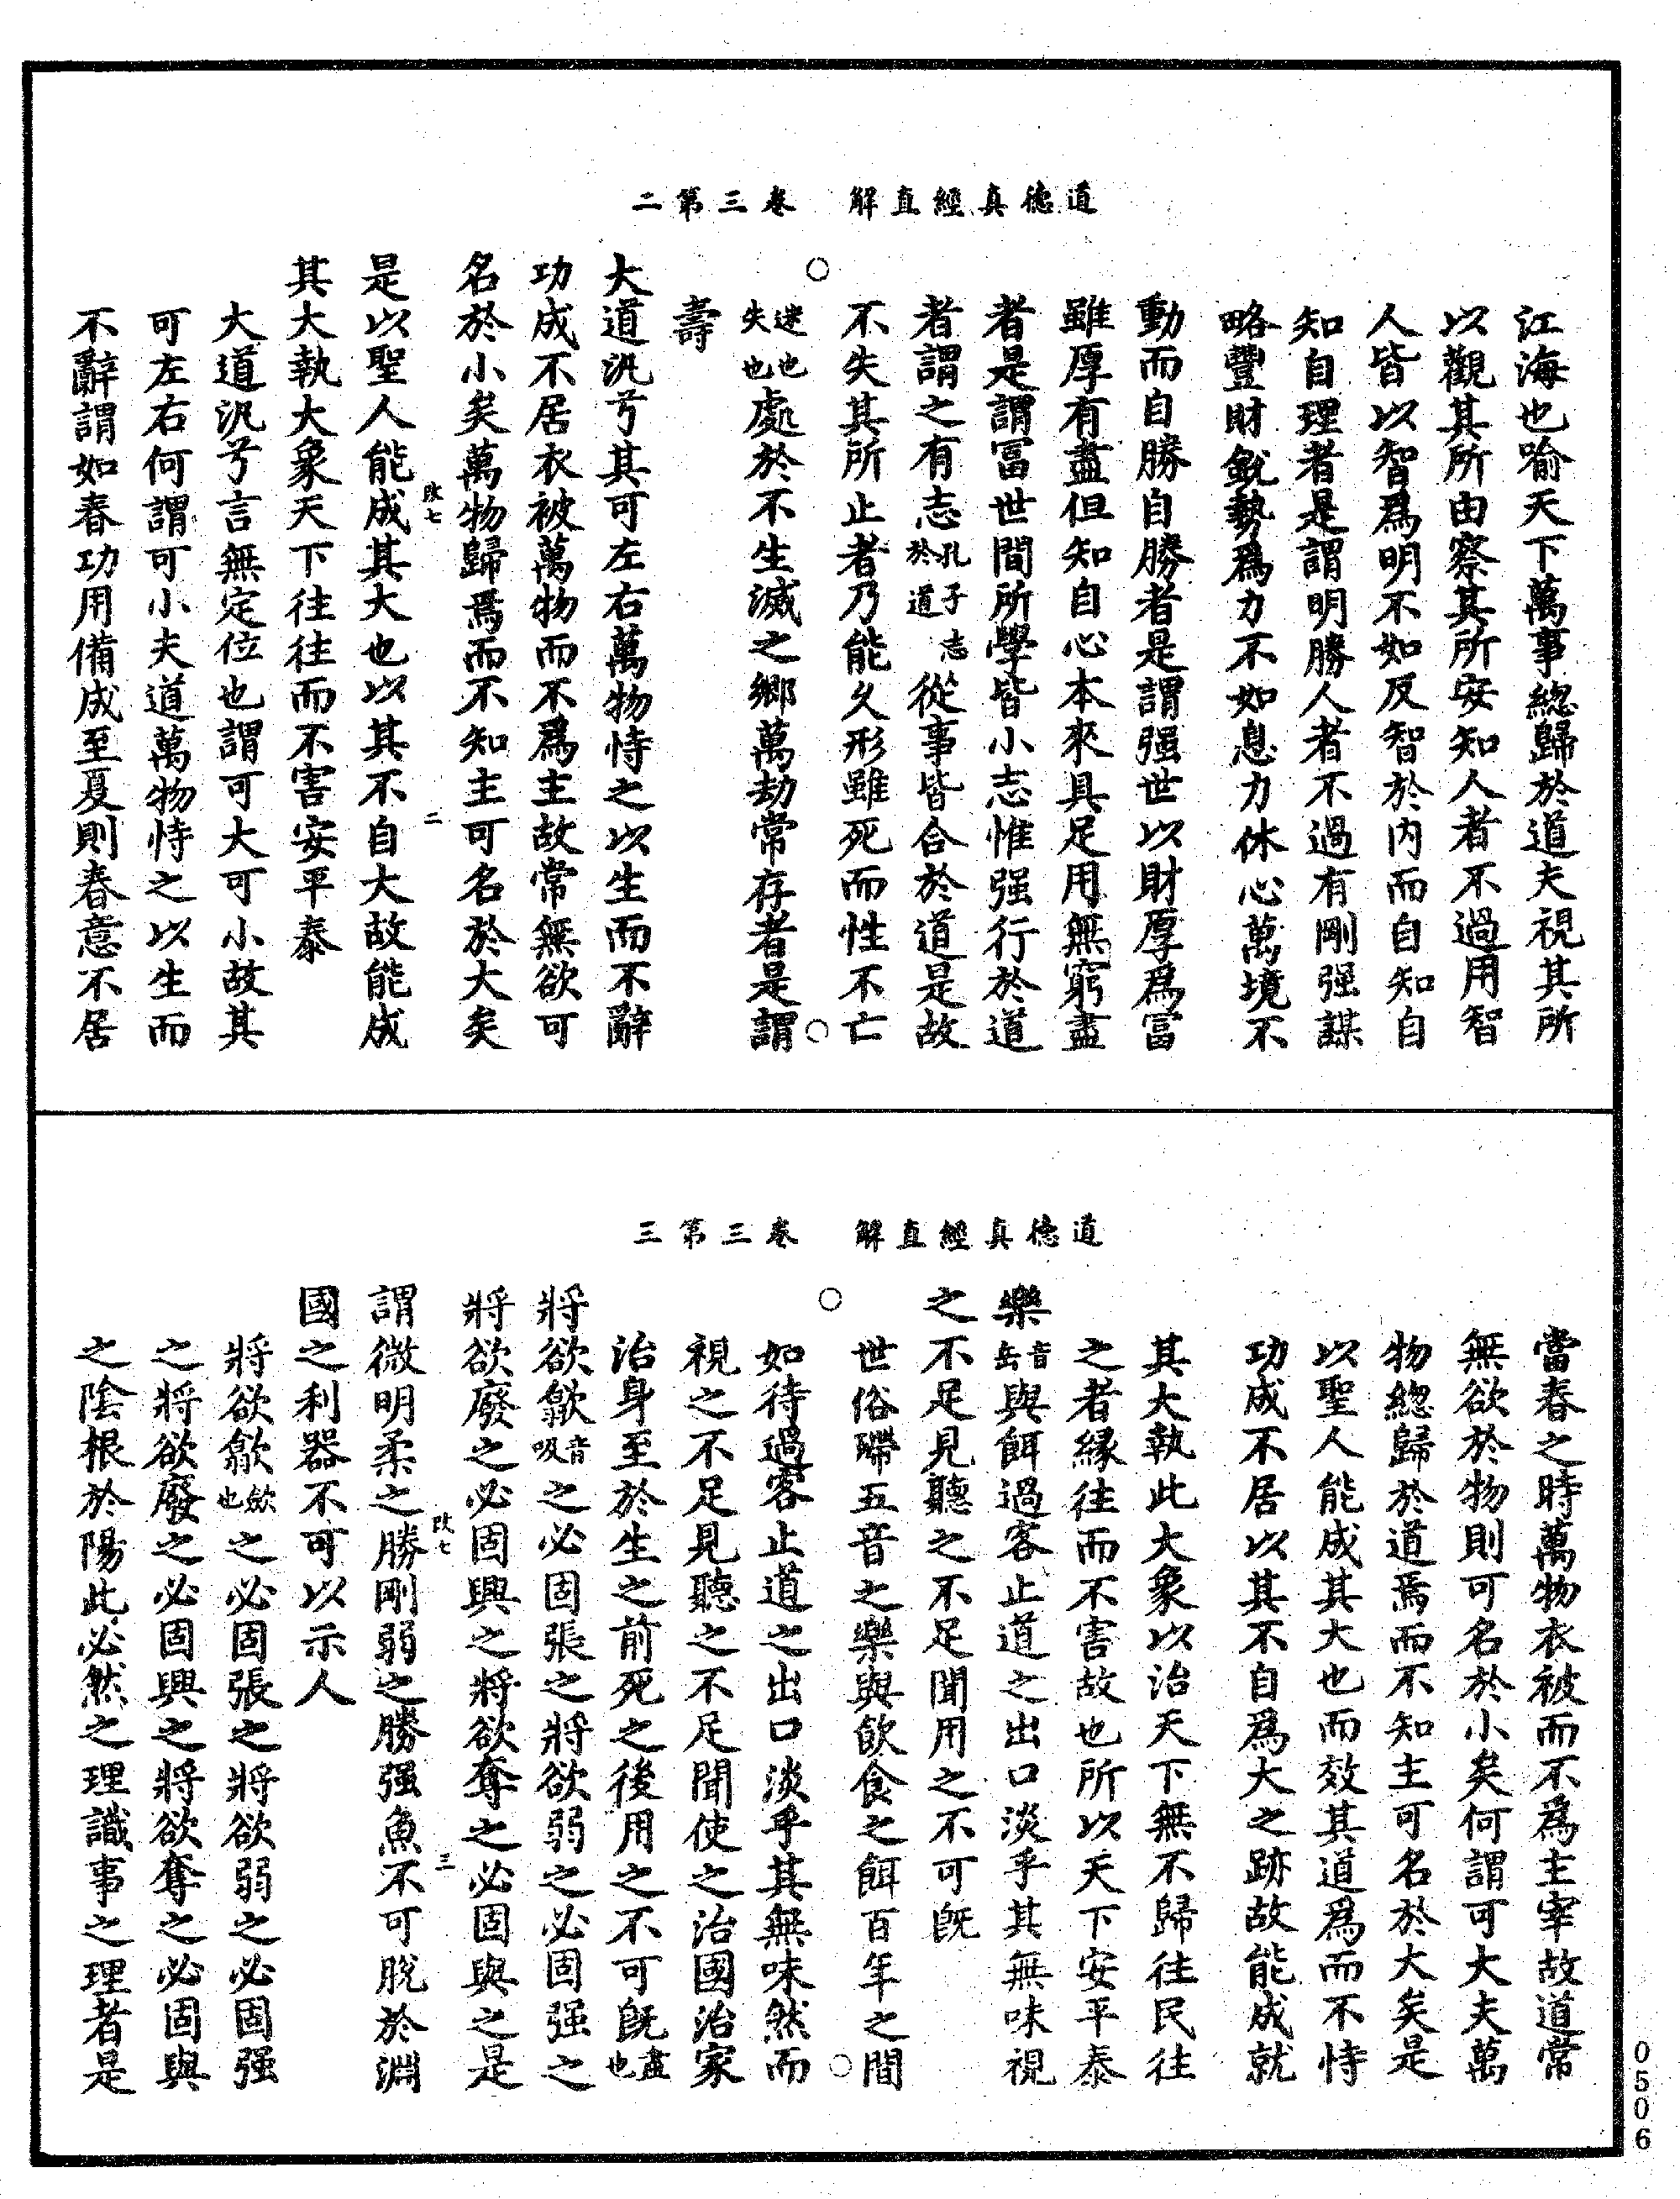 道德真經直解　卷三第二
江海也喻天下萬事緫歸於道夫視其所
以觀其所由察其所安知人者不過用智
人皆以智爲明不如反智於内而自知自
知自理者是謂明勝人者不過有剛强謀
略豐財銳勢爲力不如息力休心萬境不
動而自勝自勝者是謂强世以財厚爲冨
雖厚有盡但知自心本來具足用無窮盡
者是謂冨世間所學皆小志惟强行於道
者謂之有志孔子志於道從事皆合於道是故
不失其所止者乃能久形雖死而性不亡
○逑也失也處於不生滅之鄉萬劫常存者是謂○
壽
大道汎兮其可左右萬物恃之以生而不辭
功成不居衣被萬物而不爲主故常無欲可
名於小矣萬物歸焉而不知主可名於大矣
改七　二
是以聖人能成其大也以其不自大故能成
其大執大象天下往往而不害安平泰
大道汎兮言無定位也謂可大可小故其
可左右何謂可小夫道萬物恃之以生而
不辭謂如春功用備成至夏則春意不居
道德真經直解　卷三第三
當春之時萬物衣被而不爲主宰故道常
無欲於物則可名於小矣何謂可大夫萬
物緫歸於道焉而不知主可名於大矣是
以聖人能成其大也而效其道爲而不恃
功成不居以其不自爲大之跡故能成就
其大執此大象以治天下無不歸往民往
之者緣往而不害故也所以天下安平泰
樂音岳與餌過客止道之出口淡乎其無味視
之不足見聽之不足聞用之不可既
世俗㴲五音之樂與飲食之餌百年之間
○如待過客止道之出口淡乎其無味然而○
視之不足見聽之不足聞使之治國治家
治身至於生之前死之後用之不可既盡也
將欲歙音吸之必固張之將欲弱之必固强之
將欲廢之必固興之將欲奪之必固與之是
改七　三
謂微明柔之勝剛弱之勝强魚不可脫於淵
國之利器不可以示人
將欲歙斂也之必固張之將欲弱之必固强
之將欲廢之必固興之將欲奪之必固與
之陰根於陽此必然之理識事之理者是
0506